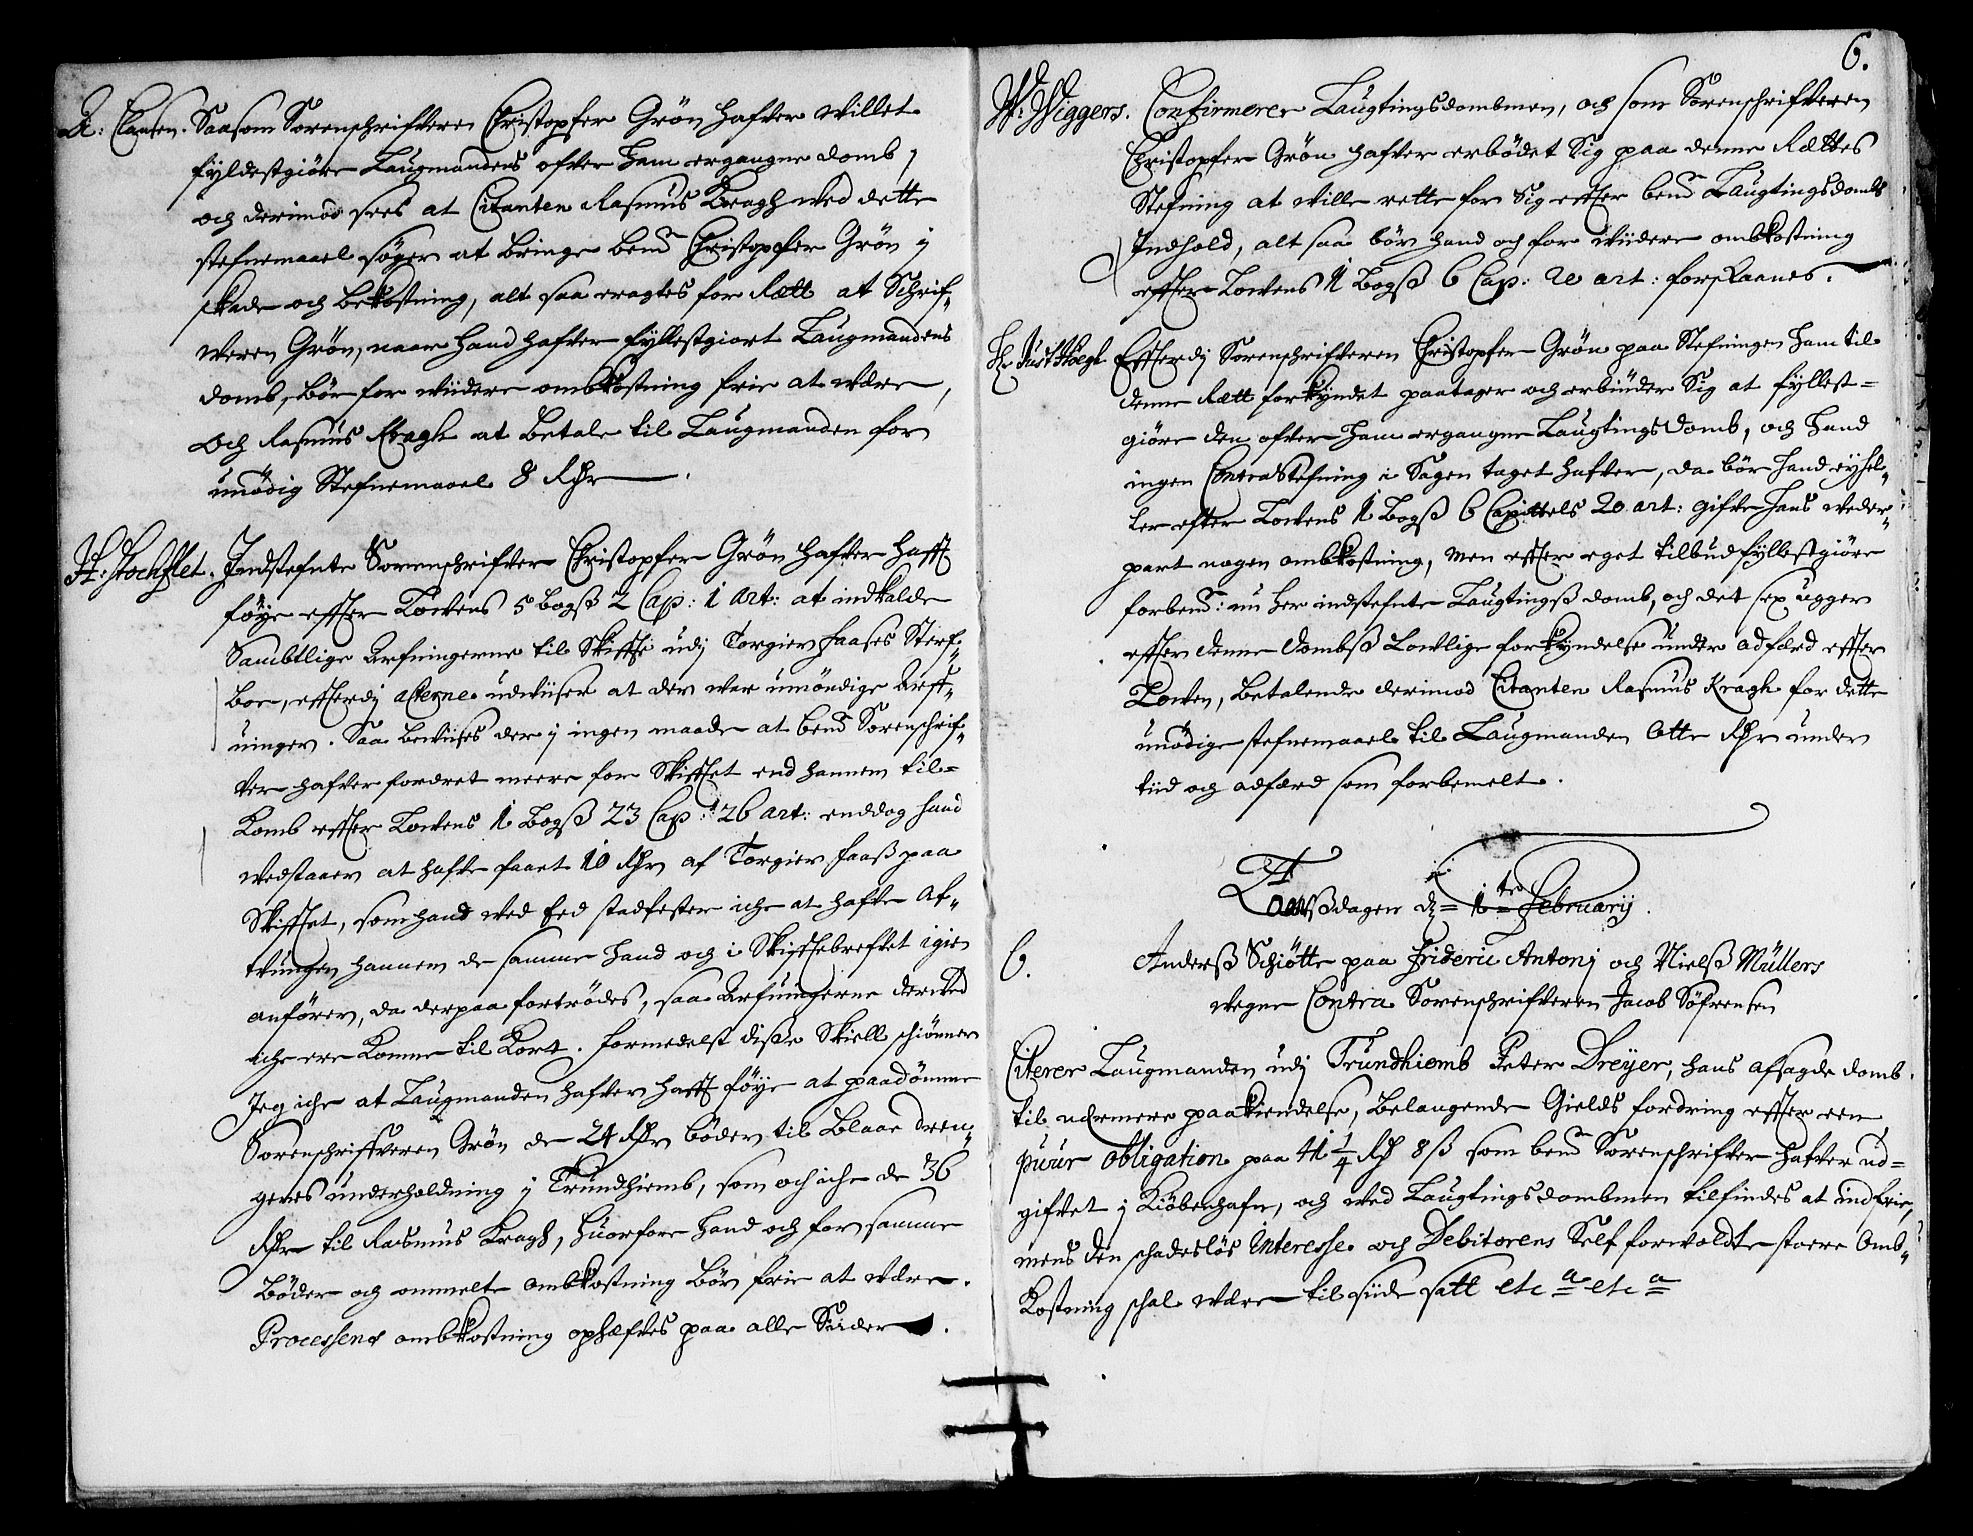 A: Clausen. Saasom Sorenschrifveren Christopfer Grön hafver villet
fyldestgiöre Laugmandens ofver ham ergangne domb,
och derimod sees at Citanten Rasmus Kragh ved dette
stefnemaael søger at bringe bemᵗᵉ Christopfer Grön i
skade och bekostning, alt saa eragtes for Rætt at Schrif-
veren Grön, naar hand hafver fyllestgiort Laugmandens
domb, bør for viidere ombkostning frie at være,
och Rasmus Kragh at betale til Laugmanden for
unödig Stefnemaael 8 Rdr
H: Stochflet. Indstefnte Sorenschrifver Christopfer Grön hafver hafft
føye effter Lovens 5 bogß 2 Cap: 1 Art: at indkalde
Sambtlige Arfvingerne til Skiffte udj Torgier Faases Sterf-
boe, effterdj acterne udviiser at der var umöndige Arff-
vinger. Saa beviises der i ingen maade at bemᵗᵉ Sorenschrif-
ver hafver fordret meere for Skifftet end hannem til-
komb effter Lovens 1 Bogß 23 Cap: 26 art: enddog hand
vedstaaer at hafve faaet 10 Rdr af Torgier Faaß paa
Skifftet, som hand ved Eed stadfester iche at hafve af-
tvungen hannem de samme hand och i Skifftebrefvet igien
anfører, da derpaa fortrödes, saa Arfvingerne derved
iche ere komne til kort. formedelst disse Skiell schiönner
Jeg iche at Laugmanden hafver hafft föye at paadömme
Sorenschrifveren Grön de 24 Rdr böder til Blaae dren-
genes underholdning i Trundhiemb, som och iche de 36
Rdr til Rasmus Kragh, huorfore hand och for samme
Böder och ommelte ombkostning bör frie at være.
Processens ombkostning ophæfves paa alle Siider.
6.
W: Wiggers. Confirmerer Laugtingsdombmen, och som Sorenschrifveren
Christopfer Grön hafver erbödet Sig paa denne Rættes
Stefning at ville rette for Sig effter bemᵗᵉ Laugtingsdombs
Indhold, alt saa bör hand och for viidere ombkostning
effter Lovens 1 Bogß 6 Cap: 20 art: forskaanes.
Hr Just Höegh Effterdj Sorenschrifveren Christopfer Grön paa Stefningen ham til
denne Rætt forkyndet paatager och erbiuder Sig at fyllest-
giöre den ofver ham ergangne Laugtings Domb, och hand
ingen Contra Stefning i Sagen taget hafver, da bör hand eyhel-
ler efter Lovens 1 Bogß 6 Capittels 20 art: gifve hans veder-
part nogen ombkostning, men effter eget tilbud fyllestgiöre
forbemᵗᵉ: nu her indstefnte Laugtingß domb, och det sex ugger
effter denne dombß Lovlige forkyndelse under adfærd effter
Loven, betalende derimod Citanten Rasmus Kragh for dette
unödige stefnemaael til Laugmanden Otte Rdr under
tiid och adfærd som forbemelt.
Torßdagen d. 1te February.
6. Anderß Schiötte paa Frideric Antonj och Nielß Müllers
vegne Contra Sorenschrifveren Jacob Söfrensen
Citerer Laugmanden udj Trundhiemb Peter Dreyer, hans afsagde domb
til nærmere paakiendelse, belangende Gields fordring effter een
puur obligation paa 41 1/4 Rdr 8 ß som bemᵗᵉ Sorenschrifver hafver ud-
gifvet i Kiöbenhafn, och ved Laugtingsdombmen tilfindes at indfrie,
mens den schadeslös Interesse och Debitorens Self forvoldte stoere Omb-
kostning schal være til siide satt etcᵃ etcᵃ